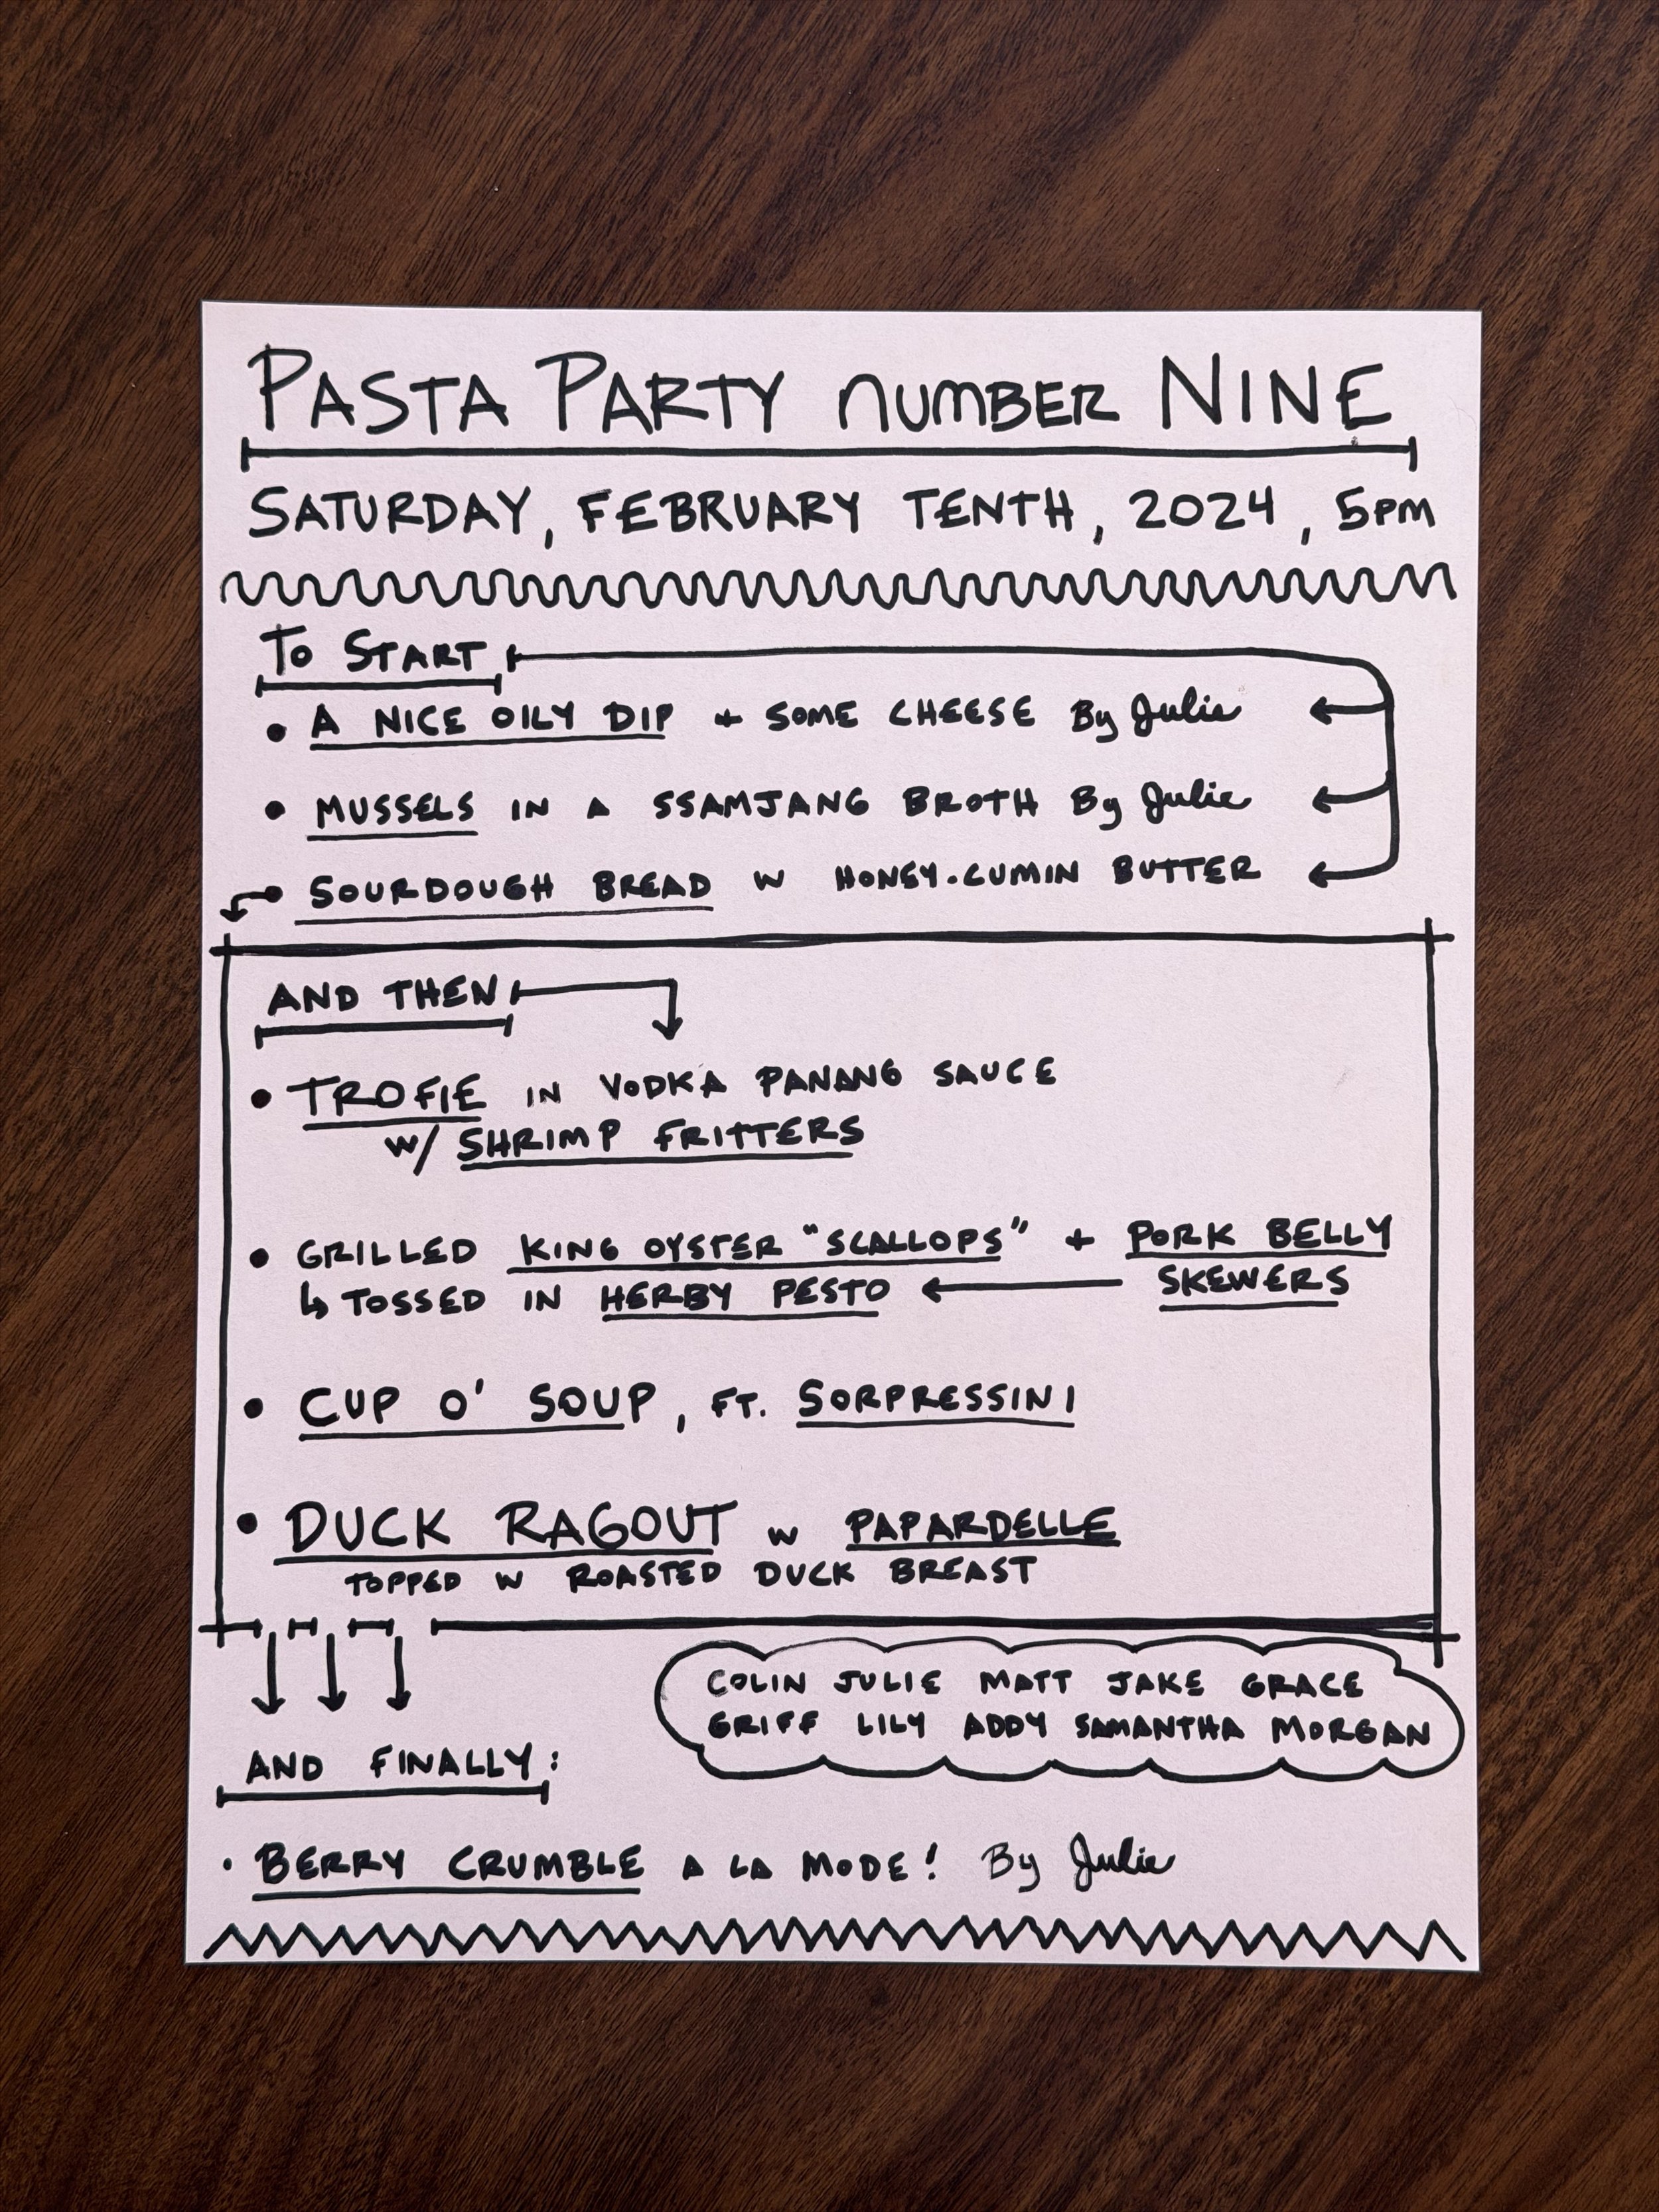 PASTA PARTY NUMBER NINE
SATURDAY, FEBRUARY TENTH, 2024, 5PM
TO START
• A NICE OILY DIP + SOME CHEESE By Julie
• MUSSELS IN A SSAMJANG BROTH By Julie
• SOURDOUGH BREAD W HONEY-CUMIN BUTTER
AND THEN
• TROFIE IN VODKA PANANG SAUCE
W/ SHRIMP FRITTERS
• GRILLED KING OYSTER "SCALLOPS" + PORK BELLY
↳ TOSSED IN HERBY PESTO ← SKEWERS
• CUP O' SOUP, FT. SORPRESSINI
• DUCK RAGOUT W PAPARDELLE
TOPPED W ROASTED DUCK BREAST
COLIN JULIE MATT JAKE GRACE
GRIFF LILY ADDY SAMANTHA MORGAN
AND FINALLY:
• BERRY CRUMBLE A LA MODE! By Julie